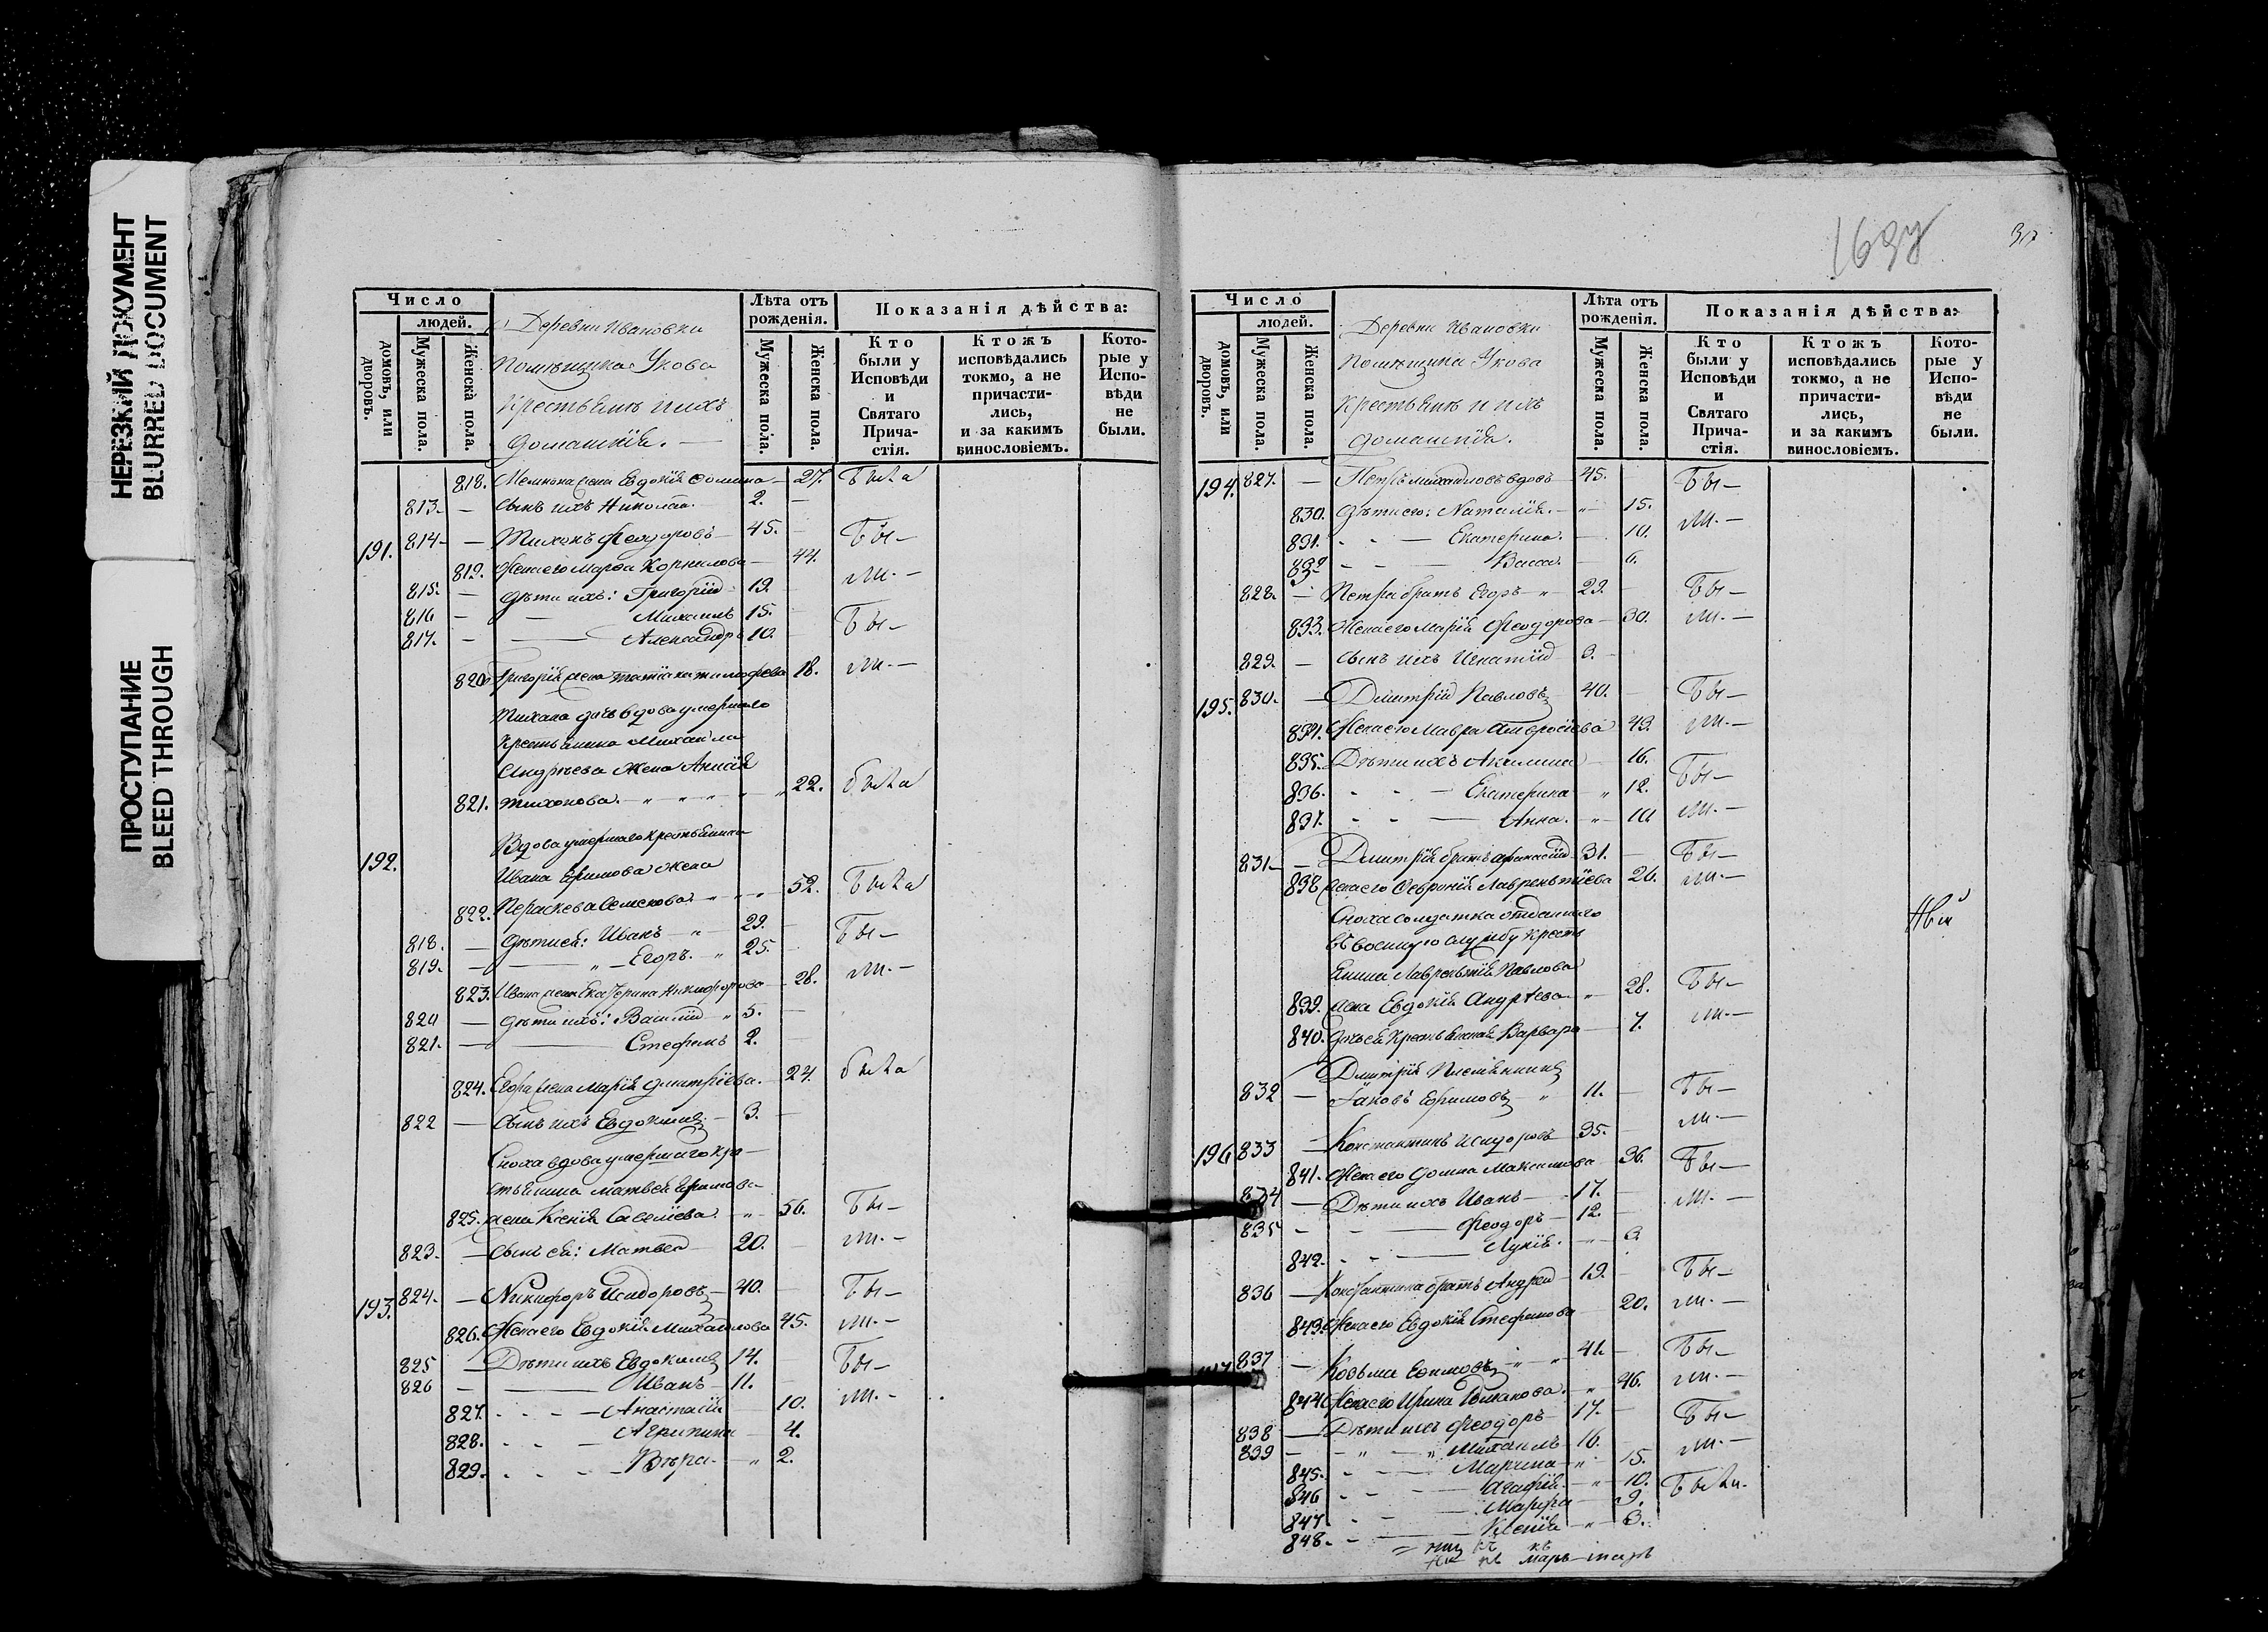 НЕРЕЗКИЙ ДОКУМЕНТ
BLURRED DOCUMENT
ПРОСТУПАНИЕ
BLEED THROUGH
Число
людей.
домовъ, или дворовъ.
Мужеска пола.
Женска пола.
Деревни Ивановки
Помѣщика Укова
Крестьяне и ихъ
домашнія.
Лѣта отъ рожденія.
Мужеска пола.
Женска пола.
Показанія дѣйства:
Кто были у Исповѣди и Святаго Прича-стія.
Ктожъ исповѣдались токмо, а не причасти-лись, и за какимъ винословіемъ.
Кото-рые у Испо-вѣди не были.
818. жена Евдокія Фомина 27. была
813. Сынъ ихъ Николай 2.
191. 814 Тихонъ Феодоровъ 45. Бы-
819. Жена его Марѳа Корнилова 44.
815. дѣти ихъ: Григорій 19. ли.
816 Михаилъ 15.
817. Александръ 10. Бы-
820 Григорія жена Татіана Тимофеева 18. ли.
Тихона дочь вдова умершаго
Крестьянина Михайла
Андреева жена Анисія
821. Тихонова. 22. была
192. Вдова умершаго крестьянина
Ивана Ефимова жена
822. Параскева Семенова 52. Была
818. дѣти ея: Иванъ 29.
819. Егоръ. 25. Бы-
823. Ивана жена Екатерина Никифорова 28. ли.
820 дѣти ихъ: Василій 5.
821. Стефанъ 2.
824. Егора жена Марія Дмитріева. 24. была
822 Сынъ ихъ Евдокимъ 3.
Сноха вдова умершаго кре-
стьянина Матвея Ефимова
825. жена Ксенія Савеліева. 56. Бы-
823. Сынъ ея: Матвей 20. ли.
193. 824. Никифоръ Исидоровъ 40. Бы-
826. Жена его Евдокія Михайлова 45. ли.
825 Дѣти ихъ Евдокимъ 14. Бы-
826 Иванъ 11.
827. Анастасія 10. ли.
828. Агрипина 4.
829. Вѣра. 2.
Число
людей.
домовъ, или дворовъ.
Мужеска пола.
Женска пола.
Деревни Ивановки
Помѣщика Укова
Крестьяне и ихъ
домашнія.
Лѣта отъ рожденія.
Мужеска пола.
Женска пола.
Показанія дѣйства:
Кто были у Исповѣди и Святаго Прича-стія.
Ктожъ исповѣдались токмо, а не причасти-лись, и за какимъ винословіемъ.
Кото-рые у Испо-вѣди не были.
194. 827. Петръ Михайловъ вдовъ 45. Бы-
830. дѣти его: Наталія. 15.
831. Екатерина. 10. ли.
832 Васса. 6.
828. Петра братъ Егоръ 29. Бы-
833. Жена его Марія Феодорова 30. ли.
829. Сынъ ихъ Игнатій 3.
195. 830. Дмитрій Павловъ 40. Бы-
834. Жена его Мавра Амвросіева 43. ли.
835. Дѣти ихъ Акилина 16.
836. Екатерина 12. Бы-
837. Анна. 10. ли.
831. Дмитрія братъ Афанасій 31. Бы-
838 жена его Февронія Лаврентіева 26. ли.
Сноха солдатка отданнаго
въ военную службу кресть
янина Лаврентія Павлова
839. жена Евдокія Андреева 28. Бы-
840. дочь ея крестьянская Варвара 7. ли.
Дмитрія племянникъ
832 Іаковъ Ефимовъ 11. Бы-
196 833 Константинъ Исидоровъ 35. ли.
841. Жена его Домна Максимова 36. Бы-
834 Дѣти ихъ Иванъ 17. ли.
835 Феодоръ 12.
842. Лукія. 3.
836 Константина братъ Андрей 19. Бы-
843. Жена его Евдокія Стефанова 20. ли.
837 Козьма Ефимовъ 41. Бы-
844. Жена его Ирина 46. ли.
838 Дѣти ихъ Феодоръ 17. Бы-
839 Михаилъ 16.
845. Марина 15. ли.
846 Агафія. 10. Были.
847 Марфа 9.
848. Ксенія 3.